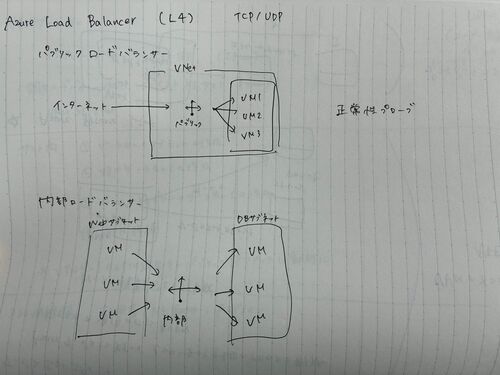 Azure Load Balancer (L4) TCP/UDP
パブリックロードバランサー
VNet
インターネット
パブリック
VM1
VM2
VM3
正常性プローブ
内部ロードバランサー
Webサブネット
VM
VM
VM
内部
DBサブネット
VM
VM
VM